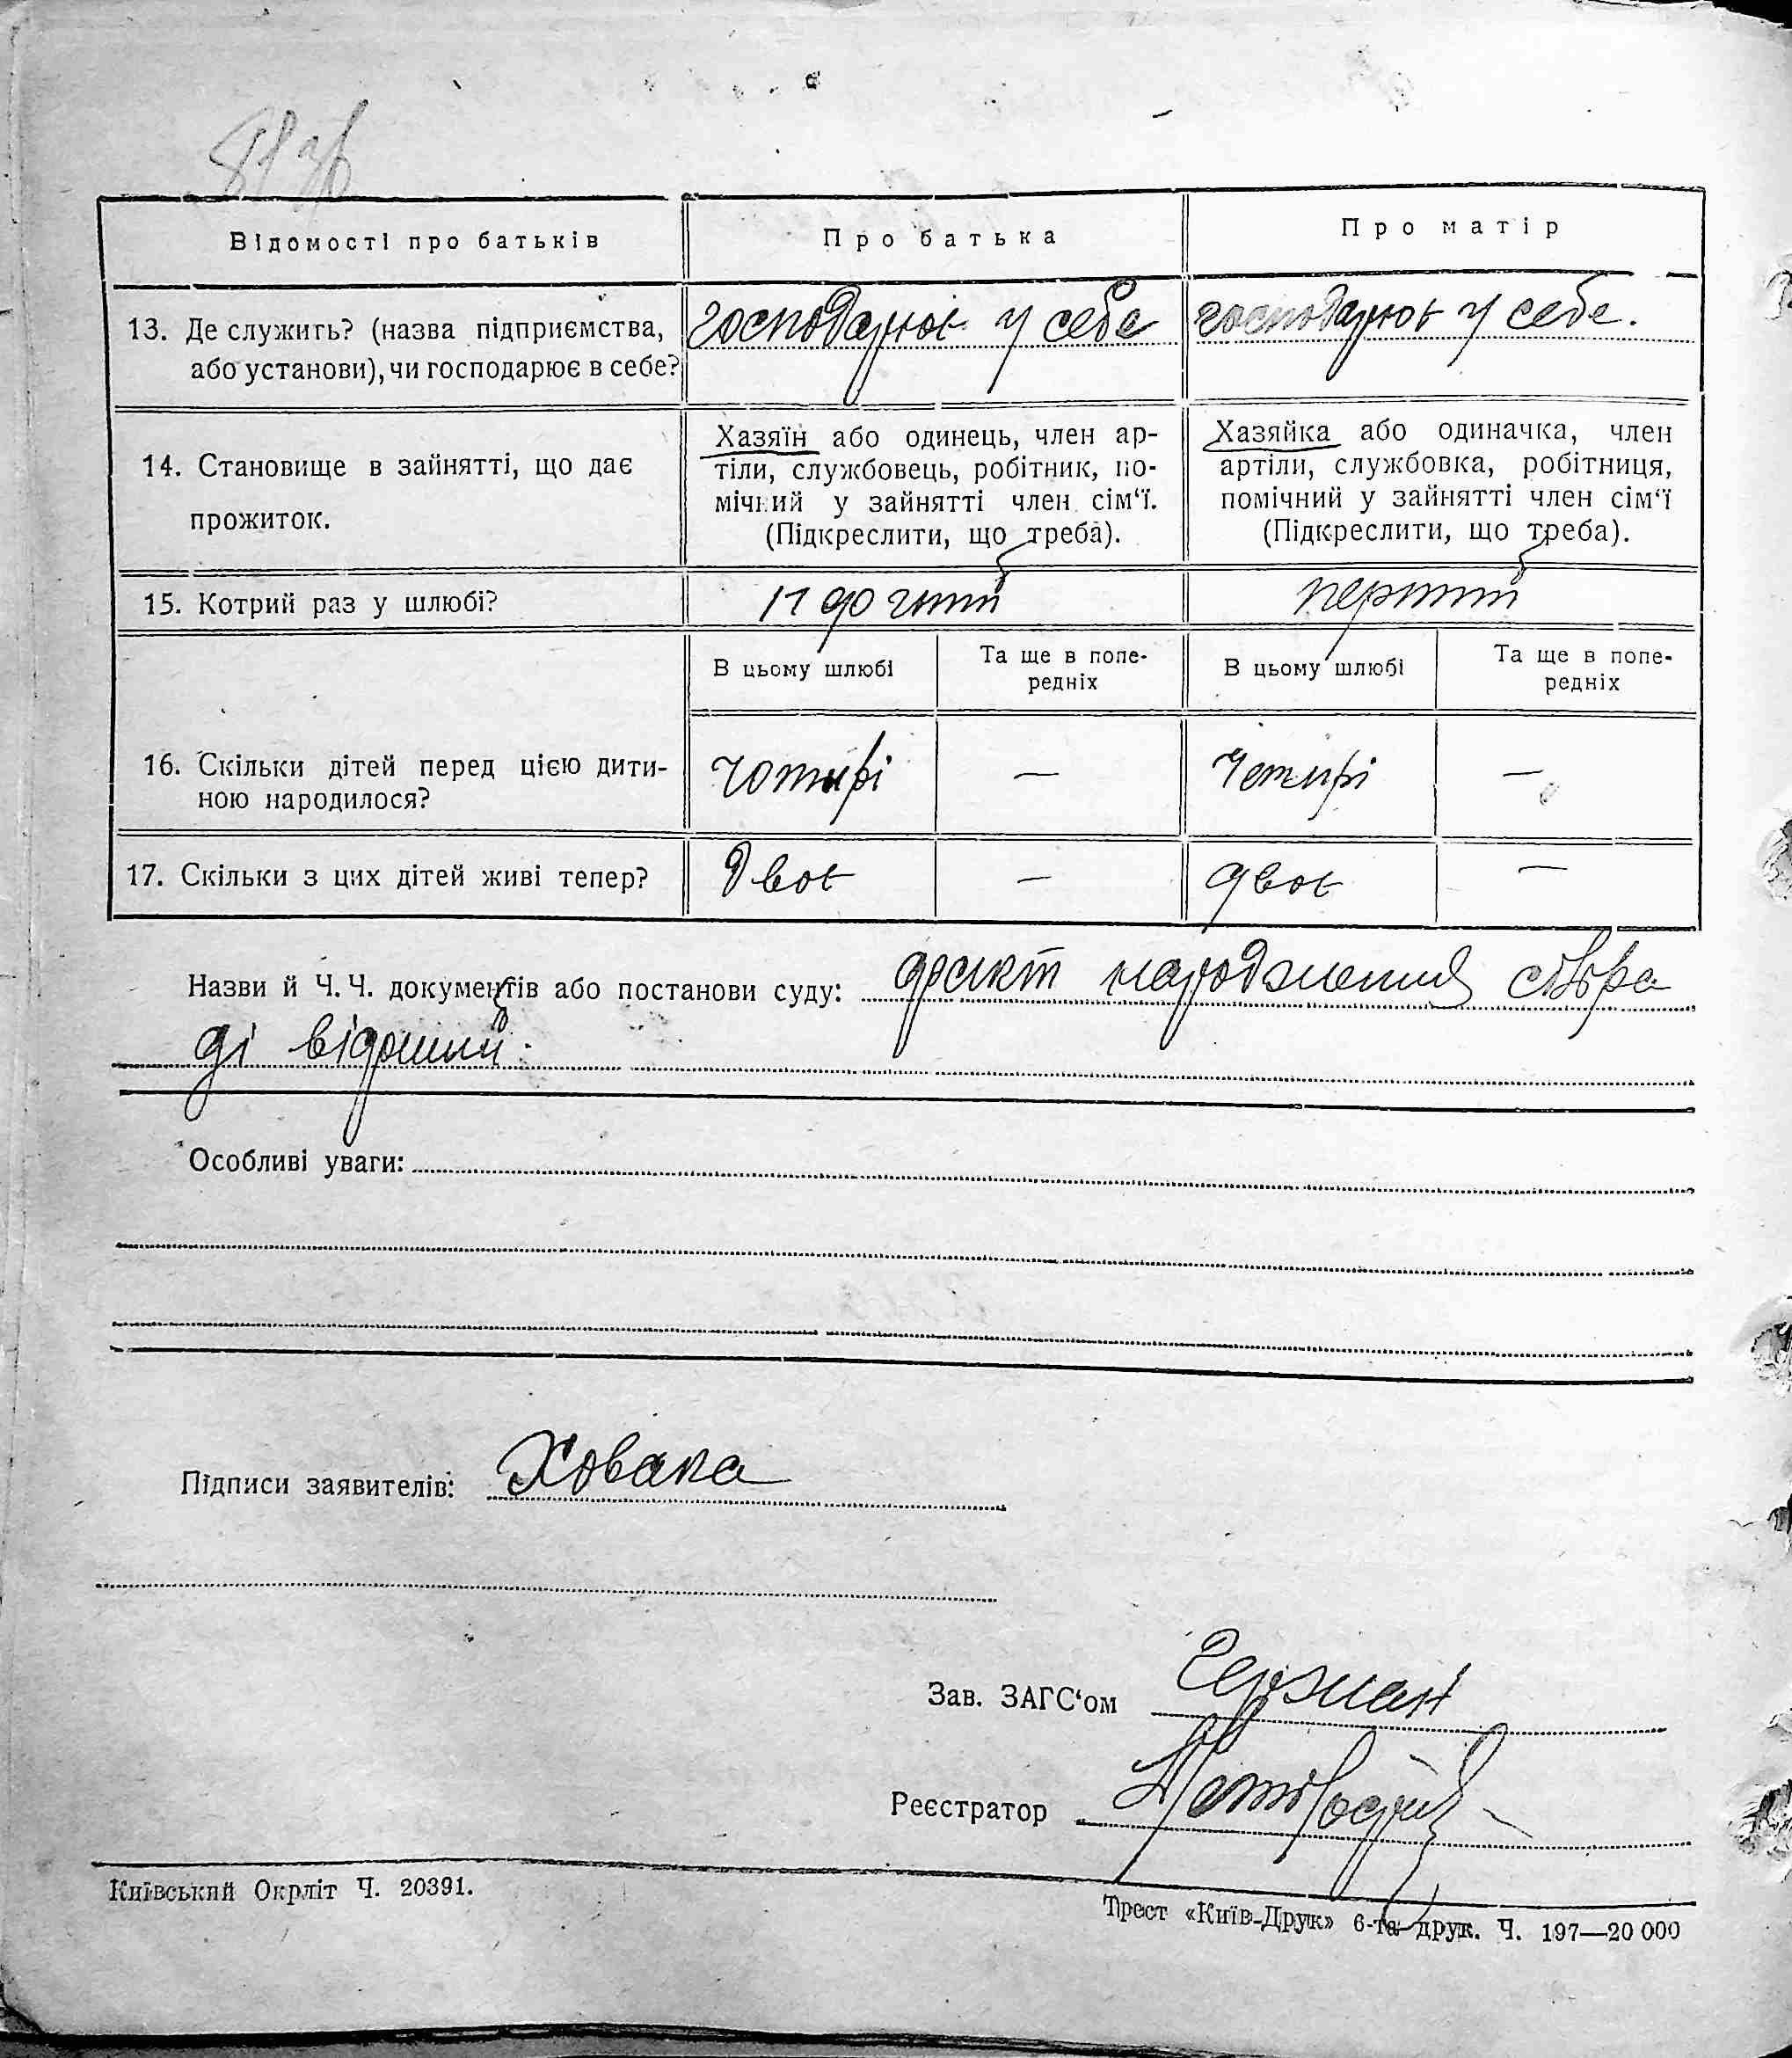 81 зв
Відомості про батьків
Про батька
Про матір
13. Де служить? (назва підприємства,
або установи), чи господарює в себе?
господарює у себе
господарює у себе.
14. Становище в зайнятті, що дає
прожиток.
Хазяїн або одинець, член ар-
тіли, службовець, робітник, по-
мічний у зайнятті член сім'ї.
(Підкреслити, що треба).
Хазяйка або одиначка, член
артіли, службовка, робітниця,
помічний у зайнятті член сім'ї
(Підкреслити, що треба).
15. Котрий раз у шлюбі?
перший
В цьому шлюбі
Та ще в попе-
редніх
В цьому шлюбі
Та ще в попе-
редніх
16. Скільки дітей перед цією дити-
ною народилося?
чотирі
—
четирі
—
17. Скільки з цих дітей живі тепер?
двоє
—
двоє
—
Назви й Ч. Ч. документів або постанови суду: факт народження сільра
ді відомий.
Особливі уваги:
Підписи заявителів: Ховака
Зав. ЗАГС'ом Герман
Реєстратор
Київський Окрліт Ч. 20391.
Трест «Київ-Друк» 6-та друк. Ч. 197—20 000